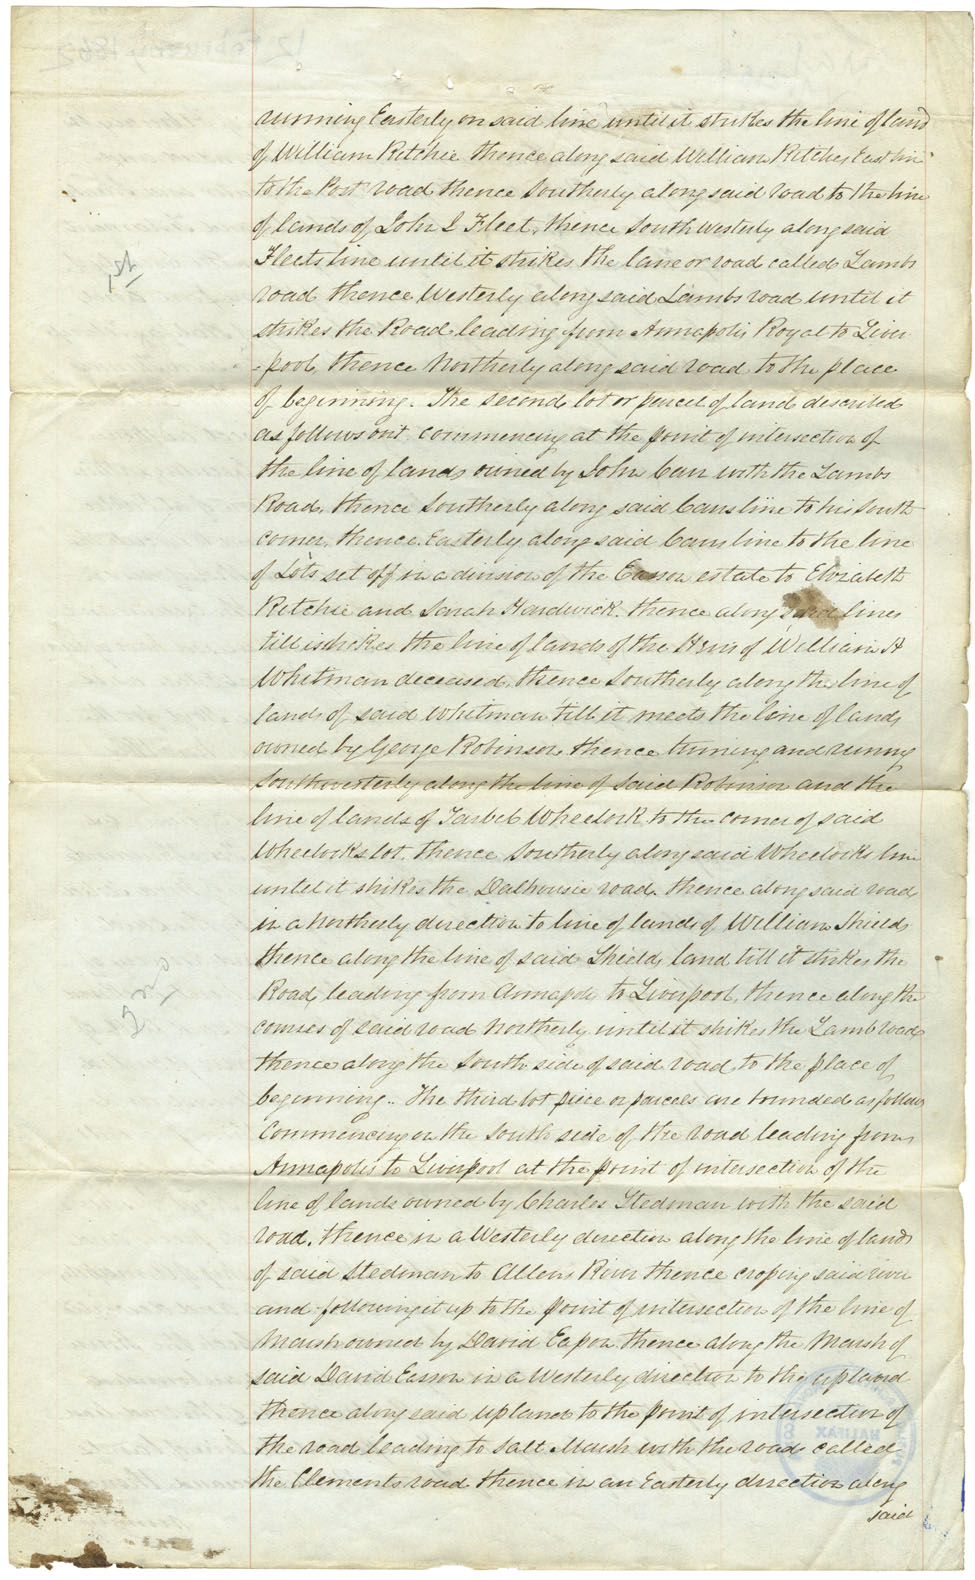 running Easterly on said line until it strikes the line of land
of William Ritchie thence along said William Ritchies East line
to the Post road thence Southerly along said road to the line
of lands of John I Fleet, thence South Westerly along said
Fleets line until it strikes the lane or road called Lambs
road thence Westerly along said Lambs road until it
1st
strikes the Road leading from Annapolis Royal to Liver
-pool, thence Northerly along said road to the place
of beginning. The second lot or parcel of land described
as follows commencing at the point of intersection of
the line of lands owned by John Carr with the Lambs
Road, thence Southerly along said Carrs line to his South
corner, thence Easterly along said Carrs line to the line
of Lots set off in a division of the Easson estate to Elizabeth
Ritchie and Sarah Hardwick. thence along said lines
till it strikes the line of lands of the Heirs of William H
Whitman deceased, thence Southerly along the line of
lands of said Whitman till it meets the line of lands
owned by George Robinson thence turning and running
Southwesterly along the line of said Robinson and the
line of lands of Wheelock to the corner of said
Wheelocks lot, thence Southerly along said Wheelocks line
until it strikes the Dalhousie road. thence along said road
in a Northerly direction to line of lands of William Shields
thence along the line of said Shields land till it strikes the
Road leading from Annapolis to Liverpool, thence along the
2nd
courses of said road Northerly until it strikes the Lamb road
thence along the South side of said road to the place of
beginning.. The third lot piece or parcels are bounded as follows
Commencing on the South side of the road leading from
Annapolis to Liverpool at the point of intersection of the
line of lands owned by Charles Stedman with the said
road, thence in a Westerly direction along the line of lands
of said Stedman to Allens River thence croping said river
and following it up to the point of intersection of the line of
Marsh owned by David Eapon thence along the Marsh of
said David Easson in a Westerly direction to the upland
thence along said upland to the point of intersection of
the road leading to Salt Marsh with the road called
the Clements road thence in an Easterly direction along
said
HALIFAX